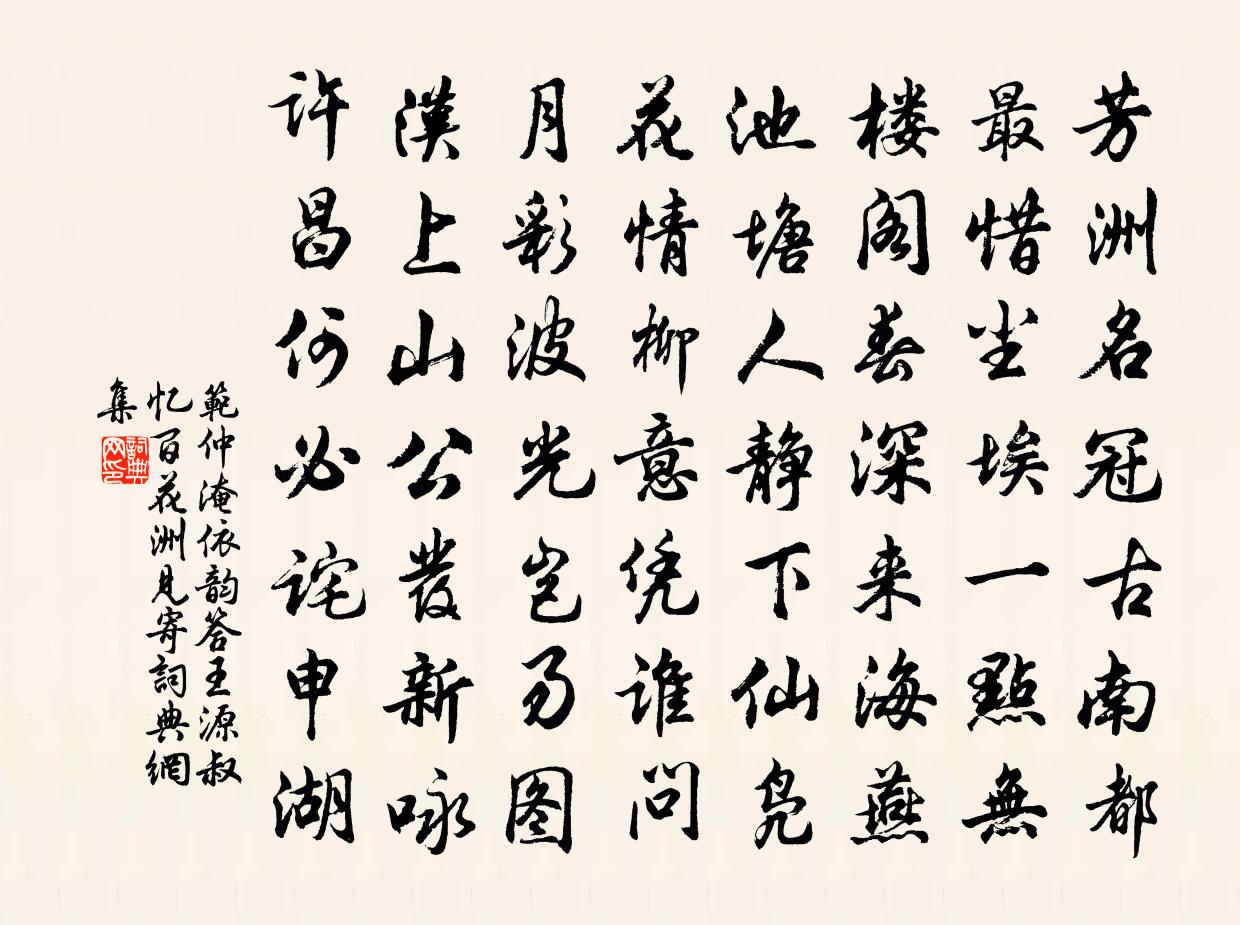 芳洲名冠古南都
最惜尘埃一點無
楼阁春深来海燕
池塘人静下仙凫
花情柳意凭谁问
月彩波光岂易图
漢上山公發新咏
许昌何必诧申湖
範仲淹依韵答王源叔
忆百花洲見寄詞典網
集
詞典网印